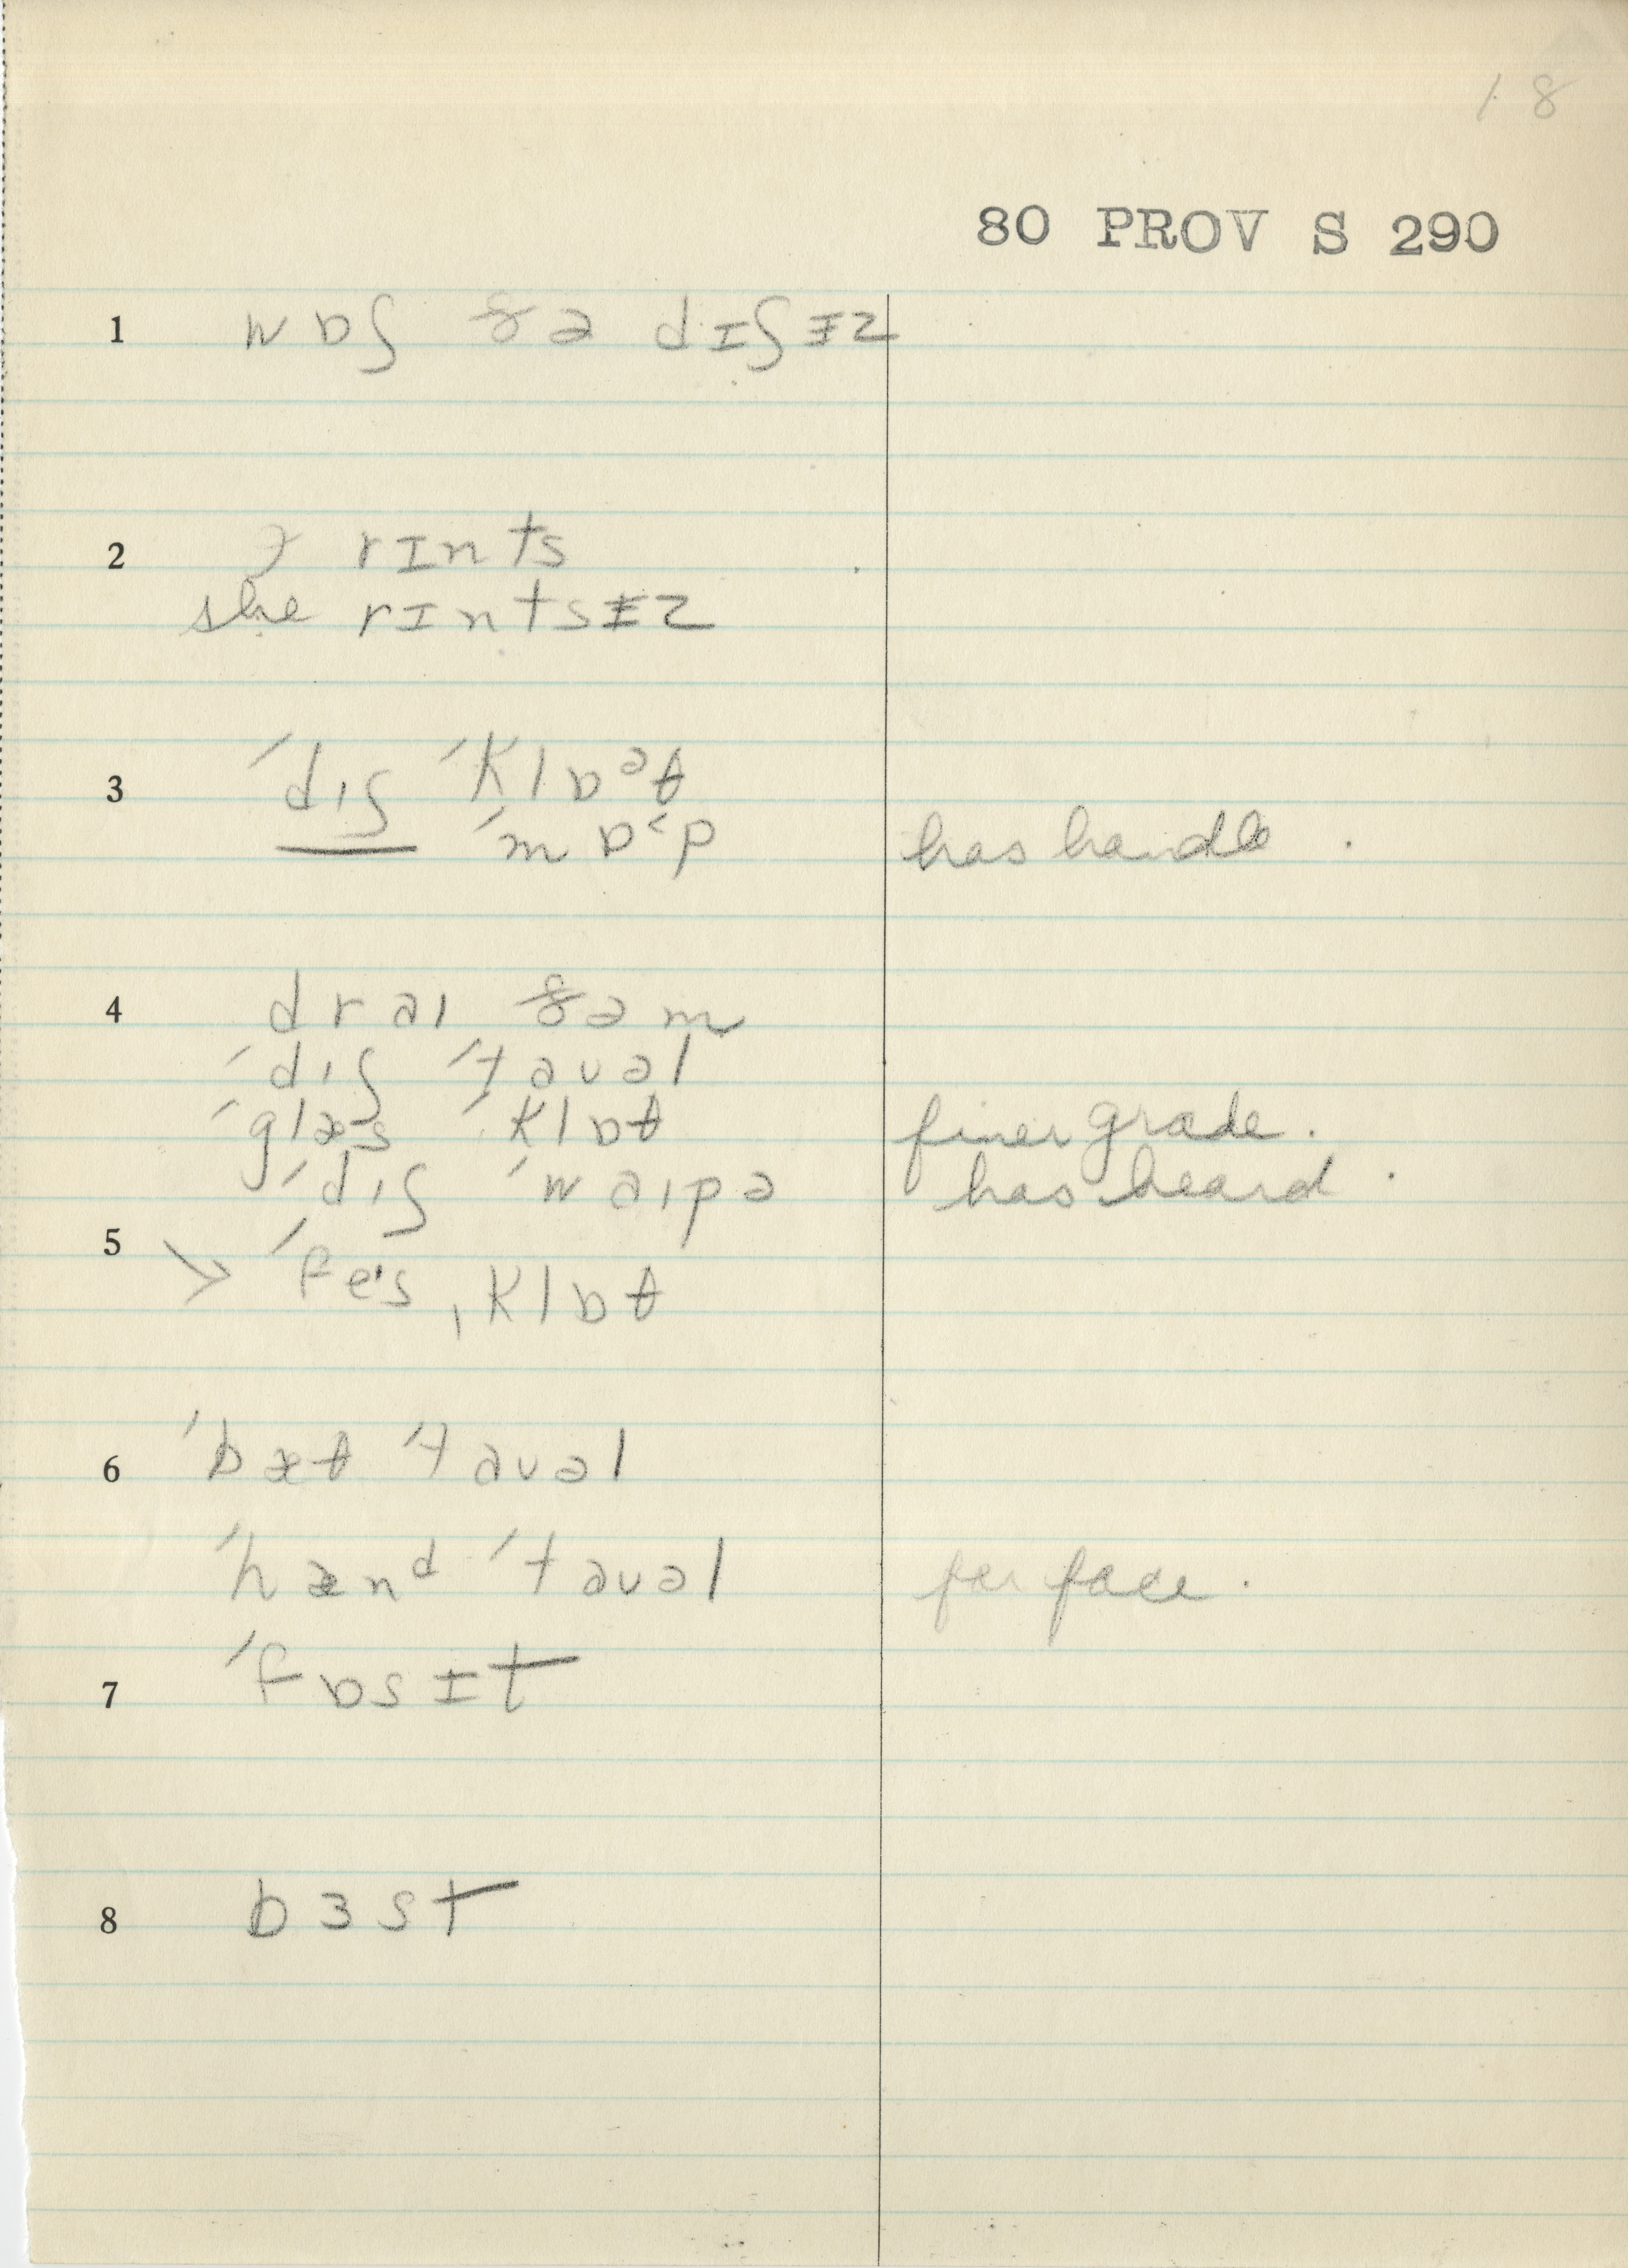 18
80 PROV S 290
1 wɒʃ ðə dɪʃɨz
2 rɪnts
she rɪntsɨz
3 ˈdɪʃ ˈklɒᵊθ
ˈmɒ˂p has handle.
4 draɪ ðəm
ˈdɪʃ ˈtaʊəl
ˈglæs ˈklɒθ finer grade.
ˈdɪʃ ˈwaɪpə has heard.
5 > ˈfeɪs ˌklɒθ
6 ˈbæθ ˈtaʊəl
ˈhænᵈ ˈtaʊəl for face.
7 ˈfɒsɨt
8 bɜst